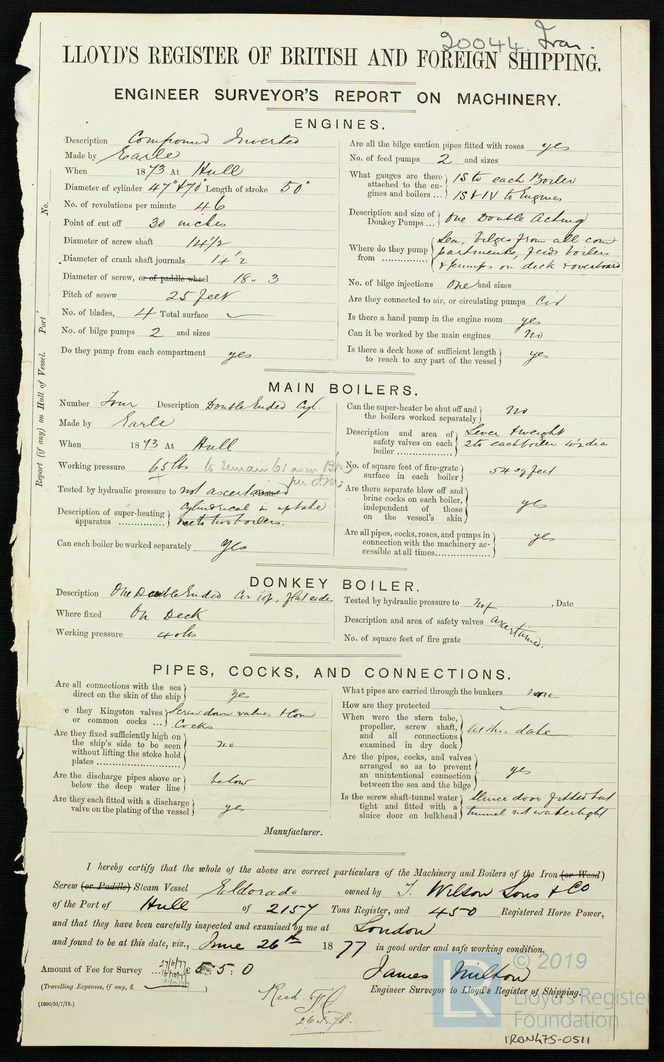 20044 Iron.
LLOYD'S REGISTER OF BRITISH AND FOREIGN SHIPPING.
ENGINEER SURVEYOR'S REPORT ON MACHINERY.
Report (if any) on Hull of Vessel. Port No.
ENGINES.
Description Compound Inverted
Made by Earle
When 1873 At Hull
Diameter of cylinder 47" & 70" Length of stroke 50"
No. of revolutions per minute 46
Point of cut off 30 inches
Diameter of screw shaft 14 1/2
Diameter of crank shaft journals 14 1/2
Diameter of screw, or of paddle wheel 18 - 3
Pitch of screw 25 feet
No. of blades, 4 Total surface
No. of bilge pumps 2 and sizes
Do they pump from each compartment yes
Are all the bilge suction pipes fitted with roses yes
No. of feed pumps 2 and sizes
What gauges are there attached to the engines and boilers ... 1S to each Boiler
1S & 1V to Engines
Description and size of Donkey Pumps ... One Double Acting
Where do they pump from Sea, bilges from all com
partments, feeds boilers
& pumps on deck & overboard
No. of bilge injections One and sizes
Are they connected to air, or circulating pumps Cir
Is there a hand pump in the engine room yes
Can it be worked by the main engines no
Is there a deck hose of sufficient length to reach to any part of the vessel yes
MAIN BOILERS.
Number Four Description Double Ended Cyl.
Made by Earle
When 1873 At Hull
Working pressure 65 lbs to remain 61 as in
Tested by hydraulic pressure to not ascertained
Description of super-heating apparatus cylindrical in uptake
one to two boilers.
Can each boiler be worked separately Yes
Can the super-heater be shut off and the boilers worked separately no
Description and area of safety valves on each boiler Lever & weight
2 to each boiler
No. of square feet of fire-grate surface in each boiler 54 sq feet
Are there separate blow off and brine cocks on each boiler, independent of those on the vessel's skin yes
Are all pipes, cocks, roses, and pumps in connection with the machinery accessible at all times yes
DONKEY BOILER.
Description One Double Ended Cir top, flat side
Where fixed On Deck
Working pressure 40 lbs
Tested by hydraulic pressure to not ascertained, Date
Description and area of safety valves
No. of square feet of fire grate
PIPES, COCKS, AND CONNECTIONS.
Are all connections with the sea direct on the skin of the ship Yes
they Kingston valves or common cocks ... Screw down valves & Com
Cocks
Are they fixed sufficiently high on the ship's side to be seen without lifting the stoke hold plates no
Are the discharge pipes above or below the deep water line below
Are they each fitted with a discharge valve on the plating of the vessel yes
What pipes are carried through the bunkers none
How are they protected
When were the stern tube, propeller, screw shaft, and all connections examined in dry dock at this date
Are the pipes, cocks, and valves arranged so as to prevent an unintentional connection between the sea and the bilge yes
Is the screw shaft-tunnel water tight and fitted with a sluice door on bulkhead Sluice door fitted but
tunnel not watertight
Manufacturer.
I hereby certify that the whole of the above are correct particulars of the Machinery and Boilers of the Iron (or Wood)
Screw (or Paddle) Steam Vessel Eldorado owned by T. Wilson Sons & Co
of the Port of Hull of 2157 Tons Register, and 450 Registered Horse Power,
and that they have been carefully inspected and examined by me at London
and found to be at this date, viz., June 26th 1877 in good order and safe working condition.
Amount of Fee for Survey 27/6/77 £ 5 : 5 : 0
(Travelling Expenses, if any, £
James Milton
Engineer Surveyor to Lloyd's Register of Shipping.
(1000/31/7/76.)
© 2019
Lloyd's Register
Foundation
IRON475-0511